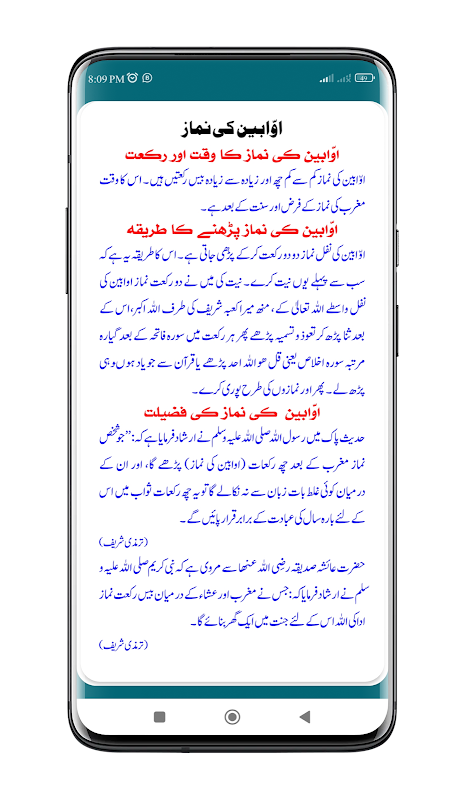 8:09 PM
اوّابین کی نماز
اوّابین کی نماز کا وقت اور رکعت
اوّابین کی نماز کم سے کم چھ اور زیادہ سے زیادہ بیس رکعتیں ہیں۔ اس کا وقت
مغرب کی نماز کے فرض اور سنت کے بعد ہے۔
اوّابین کی نماز پڑھنے کا طریقہ
اوّابین کی نفل نماز دو دو رکعت کرکے پڑھی جاتی ہے۔ اس کا طریقہ یہ ہے کہ
سب سے پہلے یوں نیت کرے۔ نیت کی میں نے دو رکعت نماز اوابین کی
نفل واسطے اللہ تعالیٰ کے، منھ میرا کعبہ شریف کی طرف اللہ اکبر، اس کے
بعد ثنا پڑھ کر تعوذ و تسمیہ پڑھے پھر ہر رکعت میں سورہ فاتحہ کے بعد گیارہ
مرتبہ سورہ اخلاص یعنی قل ھو اللہ احد پڑھے یا قرآن سے جو یاد ہوں وہی
پڑھ لے۔ پھر اور نمازوں کی طرح پوری کرے۔
اوّابین کی نماز کی فضیلت
حدیث پاک میں رسول اللہ صلی اللہ علیہ وسلم نے ارشاد فرمایا ہے کہ: ”جو شخص
نماز مغرب کے بعد چھ رکعات (اوابین کی نماز) پڑھے گا، اور ان کے
درمیان کوئی غلط بات زبان سے نہ نکالے گا تو یہ چھ رکعات ثواب میں اس
کے لئے بارہ سال کی عبادت کے برابر قرار پائیں گے۔
(ترمذی شریف)
حضرت عائشہ صدیقہ رضی اللہ عنھا سے مروی ہے کہ نبی کریم صلی اللہ علیہ و
سلم نے ارشاد فرمایا کہ: جس نے مغرب اور عشاء کے درمیان بیس رکعت نماز
ادا کی اللہ اس کے لئے جنت میں ایک گھر بنائے گا۔
(ترمذی شریف)